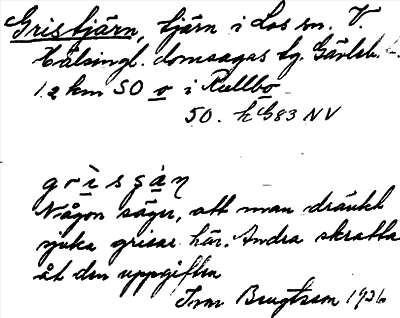 Gristjärn, tjärn i Los sn. V.
Hälsingl. domsagas tg. Gävleb. l.
1.2 km SO o i Kullbo
50. h G83 NV
grìsʂàn
Någon säger, att man dränkt
sjuka grisar här. Andra skratta
åt den uppgiften
Ivar Bengtsson 1926